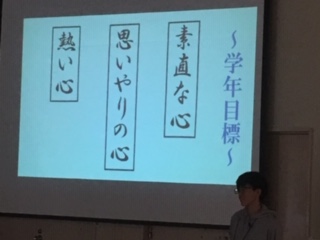 ～学年目標～
素直な心
思いやりの心
熱い心